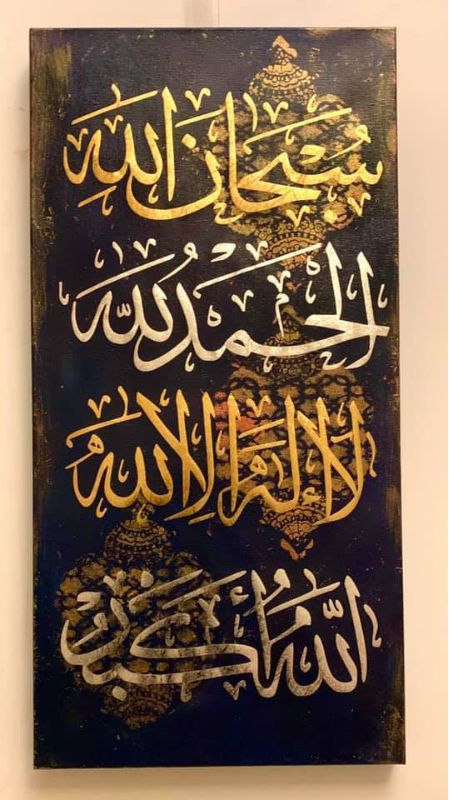 سُبْحَانَ اللَّهِ
الْحَمْدُ لِلَّهِ
لَا إِلَٰهَ إِلَّا اللَّهُ
اللَّهُ أَكْبَرُ